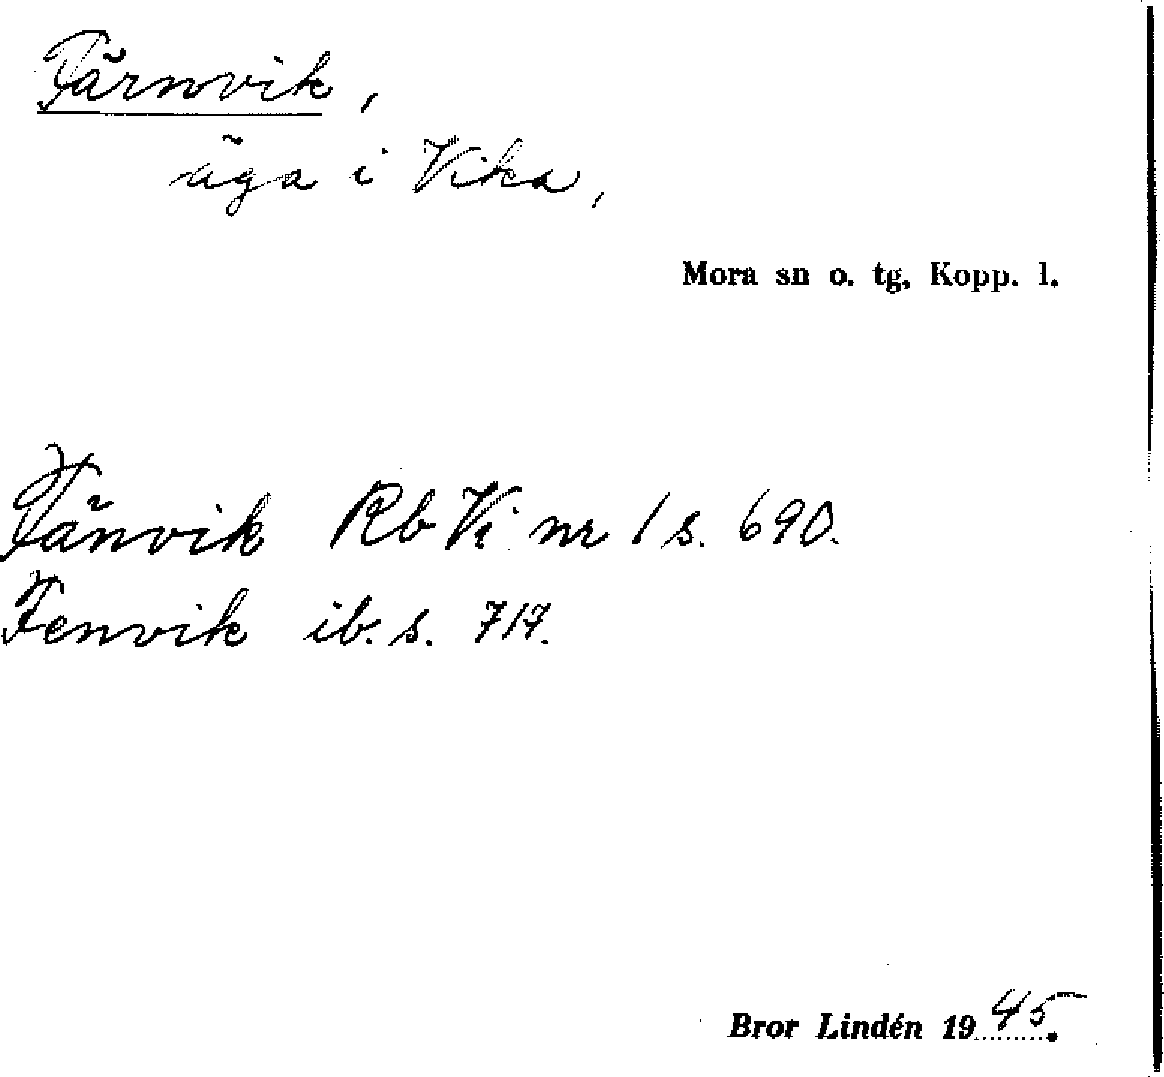 Tärnvik,
äga i Vika,
Mora sn o. tg, Kopp. l.
Tänvik Rb Vi nr 1 s. 690.
Tenvik ib. s. 717.
Bror Lindén 1945.